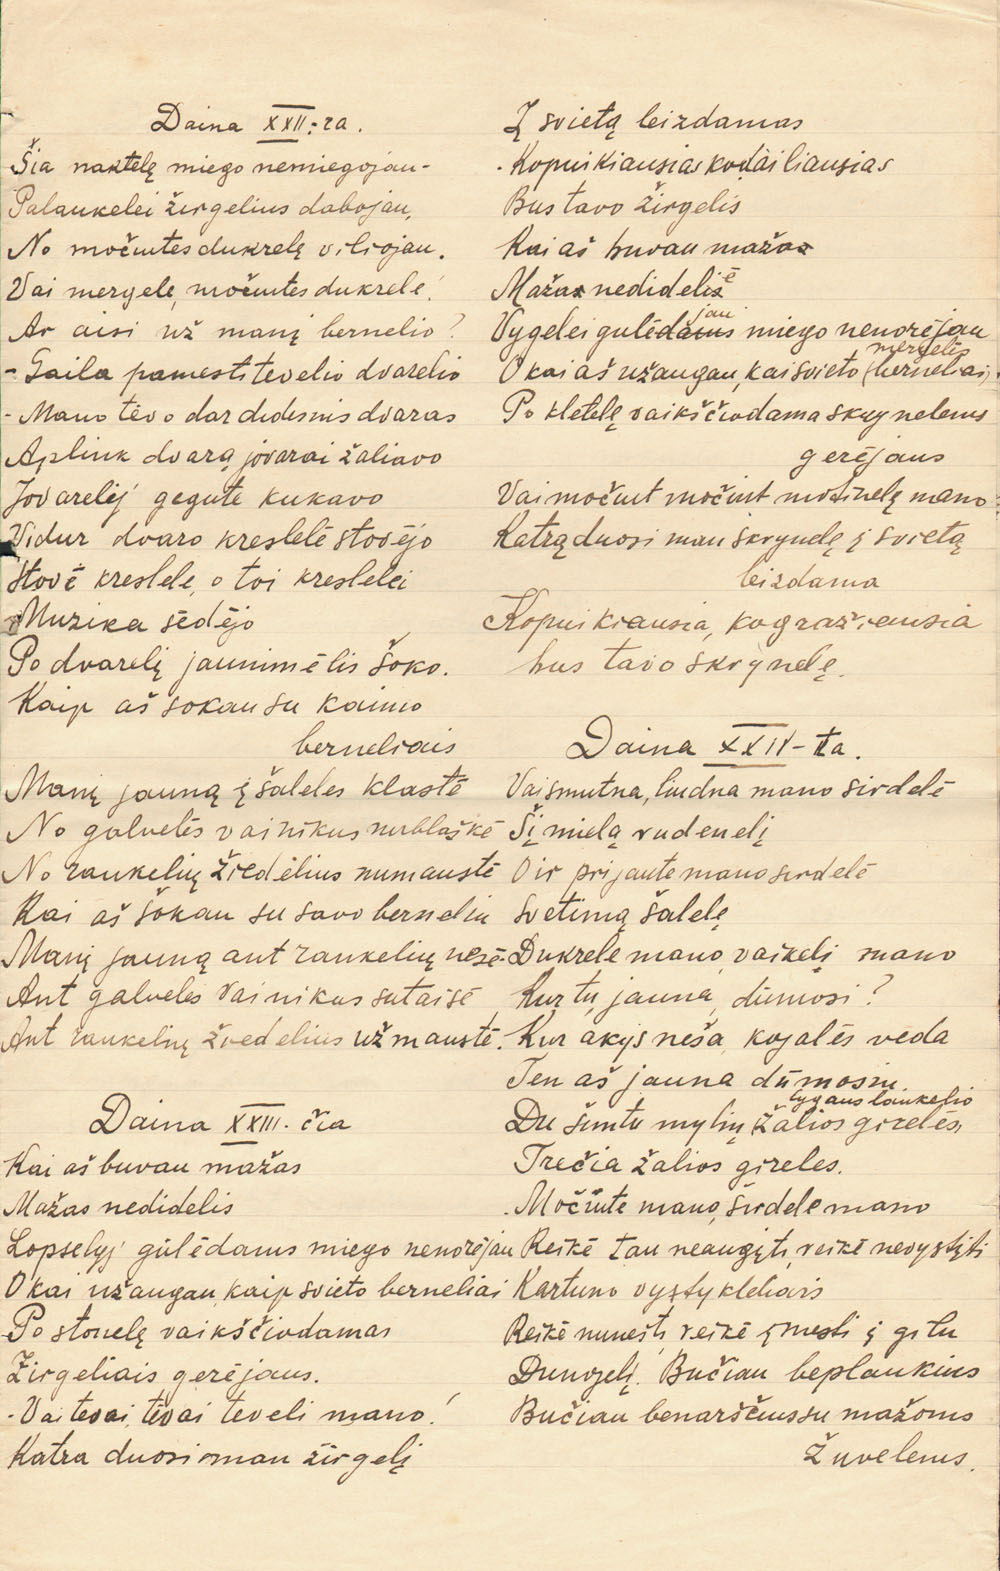 Daina XXII-ra.
Šia naktelę miego nemiegojau-
Palaukelei žirgelius dabojau,
No močiutes dukrelę viliojau.
Vai mergele, močiutes dukrele!
Ar aisi už manį bernelio?
- Gaila pamesti tevelio dvarelio
- Mano tėvo dar didesnis dvaras
Aplink dvarą jovarai žaliavo
Jovarelij gegute kukavo
Vidur dvaro kreslelė stovėjo
Stovė kreslele, o toi kreslelei
Muzika sėdėjo
Po dvarelį jaunimėlis šoko.
Kaip aš sokau su kaimo
berneliais
Manį jauną į šaleles klastė
No galvelės vainikus nublaškė
No rankelių žiedėlius numaustė
Kai aš šokau su savo berneliu
Manį jauną ant rankelių nešė
Ant galvelės vainikus sutaisė
Ant rankelių žiedelius užmaustė.
Daina XXIII-čia
Kai aš buvau mažas
Mažas nedidelis
Lopselyj gulėdams miego nenorėjau
O kai užaugau, kaip svieto berneliai
Po stonelę vaikščiodamas
Žirgeliais gerėjaus.
- Vai tevai, tėvai teveli mano!
Katra duosi man žirgelį
Į svietą leizdamas
- Kopuikiausias kodailiausias
Bus tavo žirgelis
Kai aš buvau maža
Maža nedidelė
Vygelei gulėdajau miego nenorėjau
O kai aš užaugau, kai svieto (berneliai) mergelės
Po kletelę vaikščiodama skrynelems
gerėjaus
Vai močiut močiut motinelę mano
Katrą duosi man skrynelę į svietą
leizdama
Kopuikiausia, kogražiausia
bus tavo skrynelę.
Daina XXIV-ta.
Vai smutna, liudna mano sirdelė
Šį mielą rudenelį
O ir prijaute mano sirdelė
Svetimą šalelę
Dukrele mano, vaikelį mano
Kur tu, jauna, dūmosi?
Kur akys neša, kojalės veda
Ten aš jauna dūmosiu.
lygaus laukelio
Du šimtu mylių žalios girelės,
Trečia žalios gireles.
- Močiute mano, širdele mano
Reikė tau neaugįti, reikė nevystįti
Kartuno vystykleliais
Reikė nunešti, reikė įmesti į gilu
Dunojelį. Bučiau beplaukius
Bučiau benarščius su mažoms
Žuvelems.